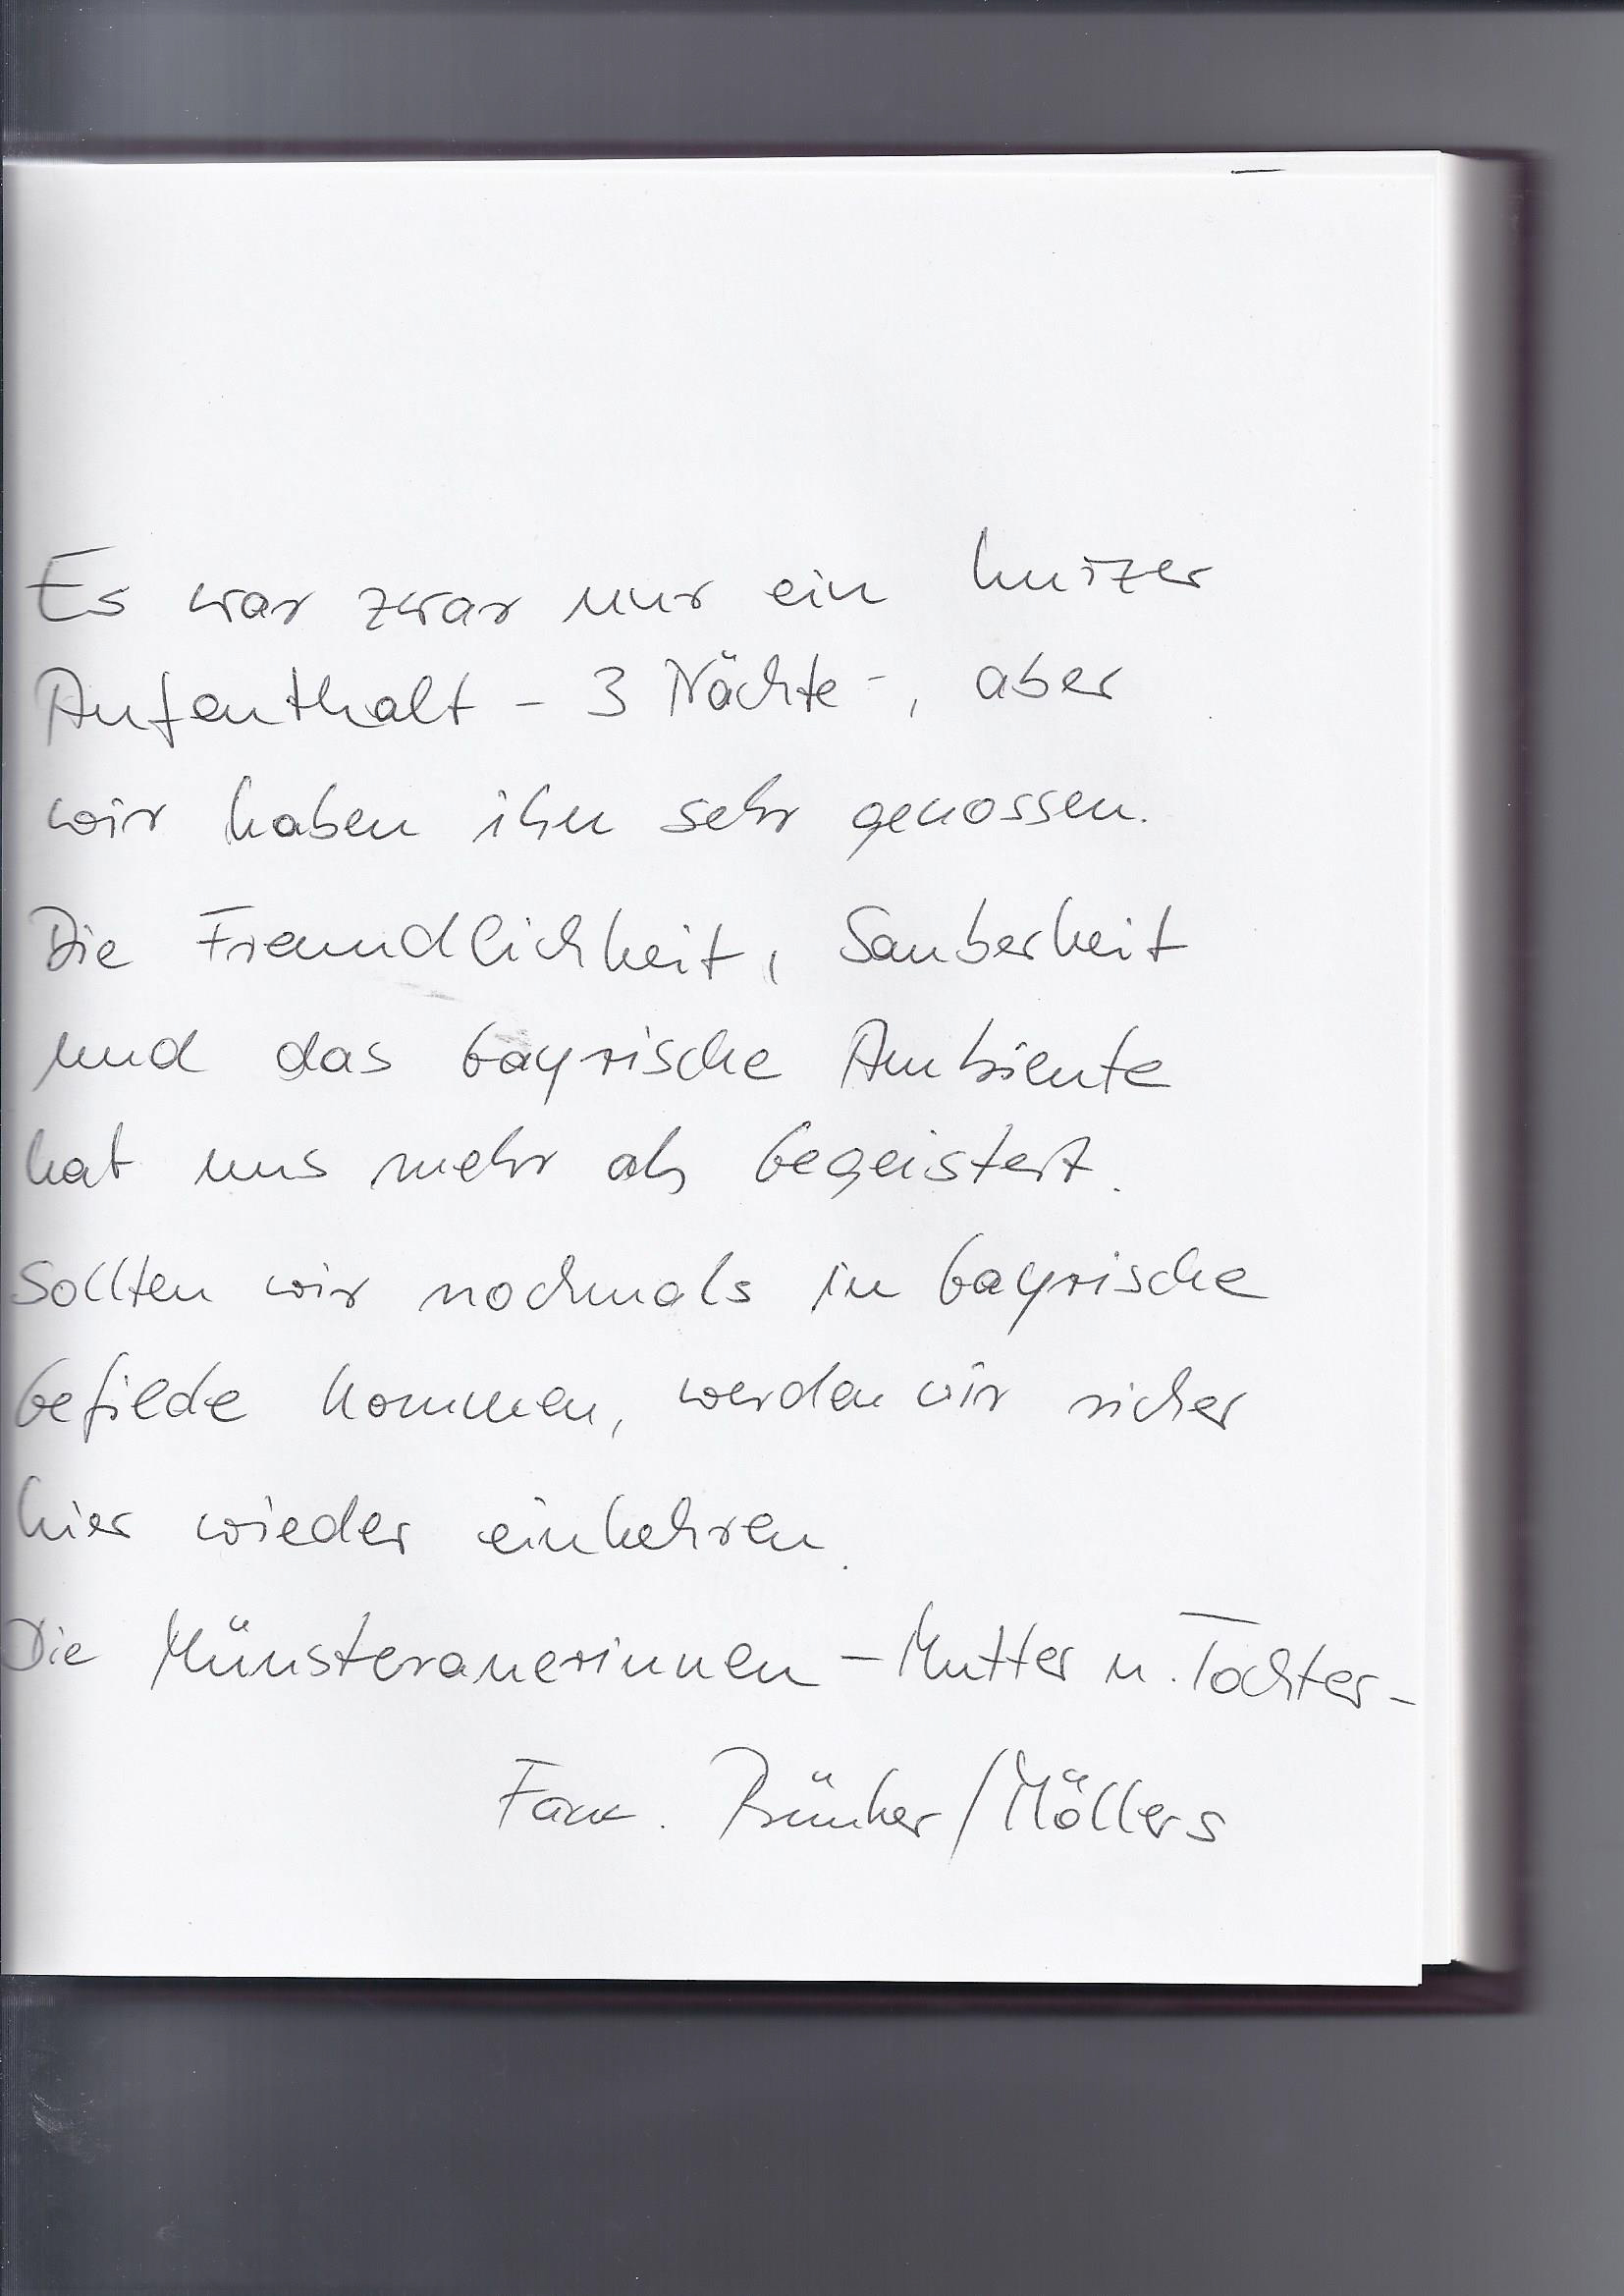 Es war zwar nur ein kurzer
Aufenthalt - 3 Nächte -, aber
wir haben ihn sehr genossen.
Die Freundlichkeit, Sauberkeit
und das bayrische Ambiente
hat uns mehr als begeistert.
Sollten wir nochmals in bayrische
Gefilde kommen, werden wir sicher
hier wieder einkehren.
Die Münsteranerinnen - Mutter u. Tochter -
Fam. Bünker / Möllers